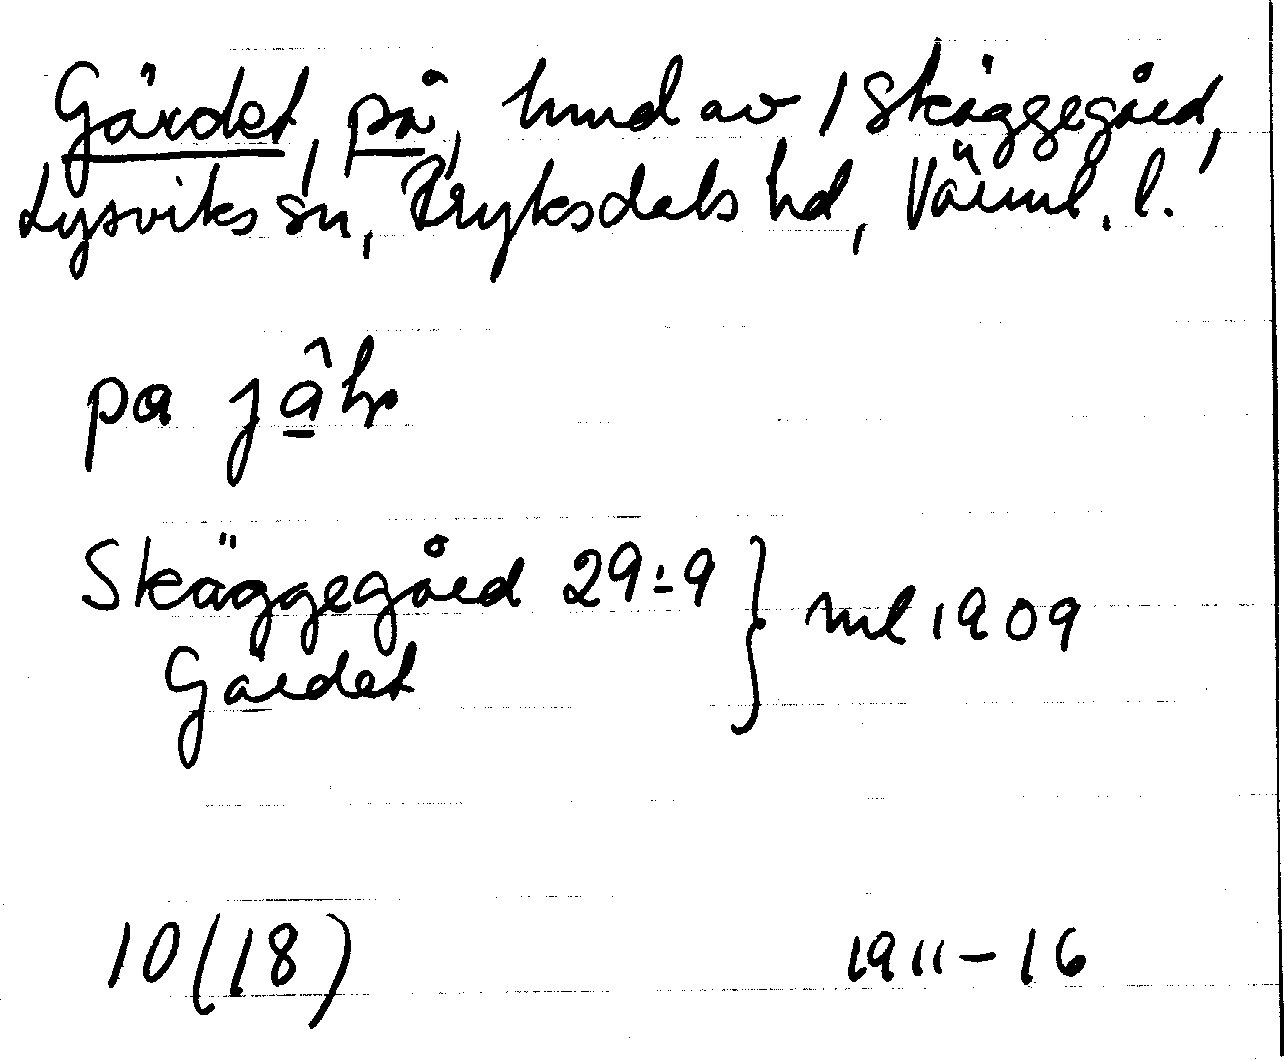 Gärdet, på, hmd av 1 Skäggegård,
Lysviks sn, Fryksdals hd, Värml. l.
pa
Skäggegård 29:9 } ml 1909
Gärdet
10 (18) 1911-16